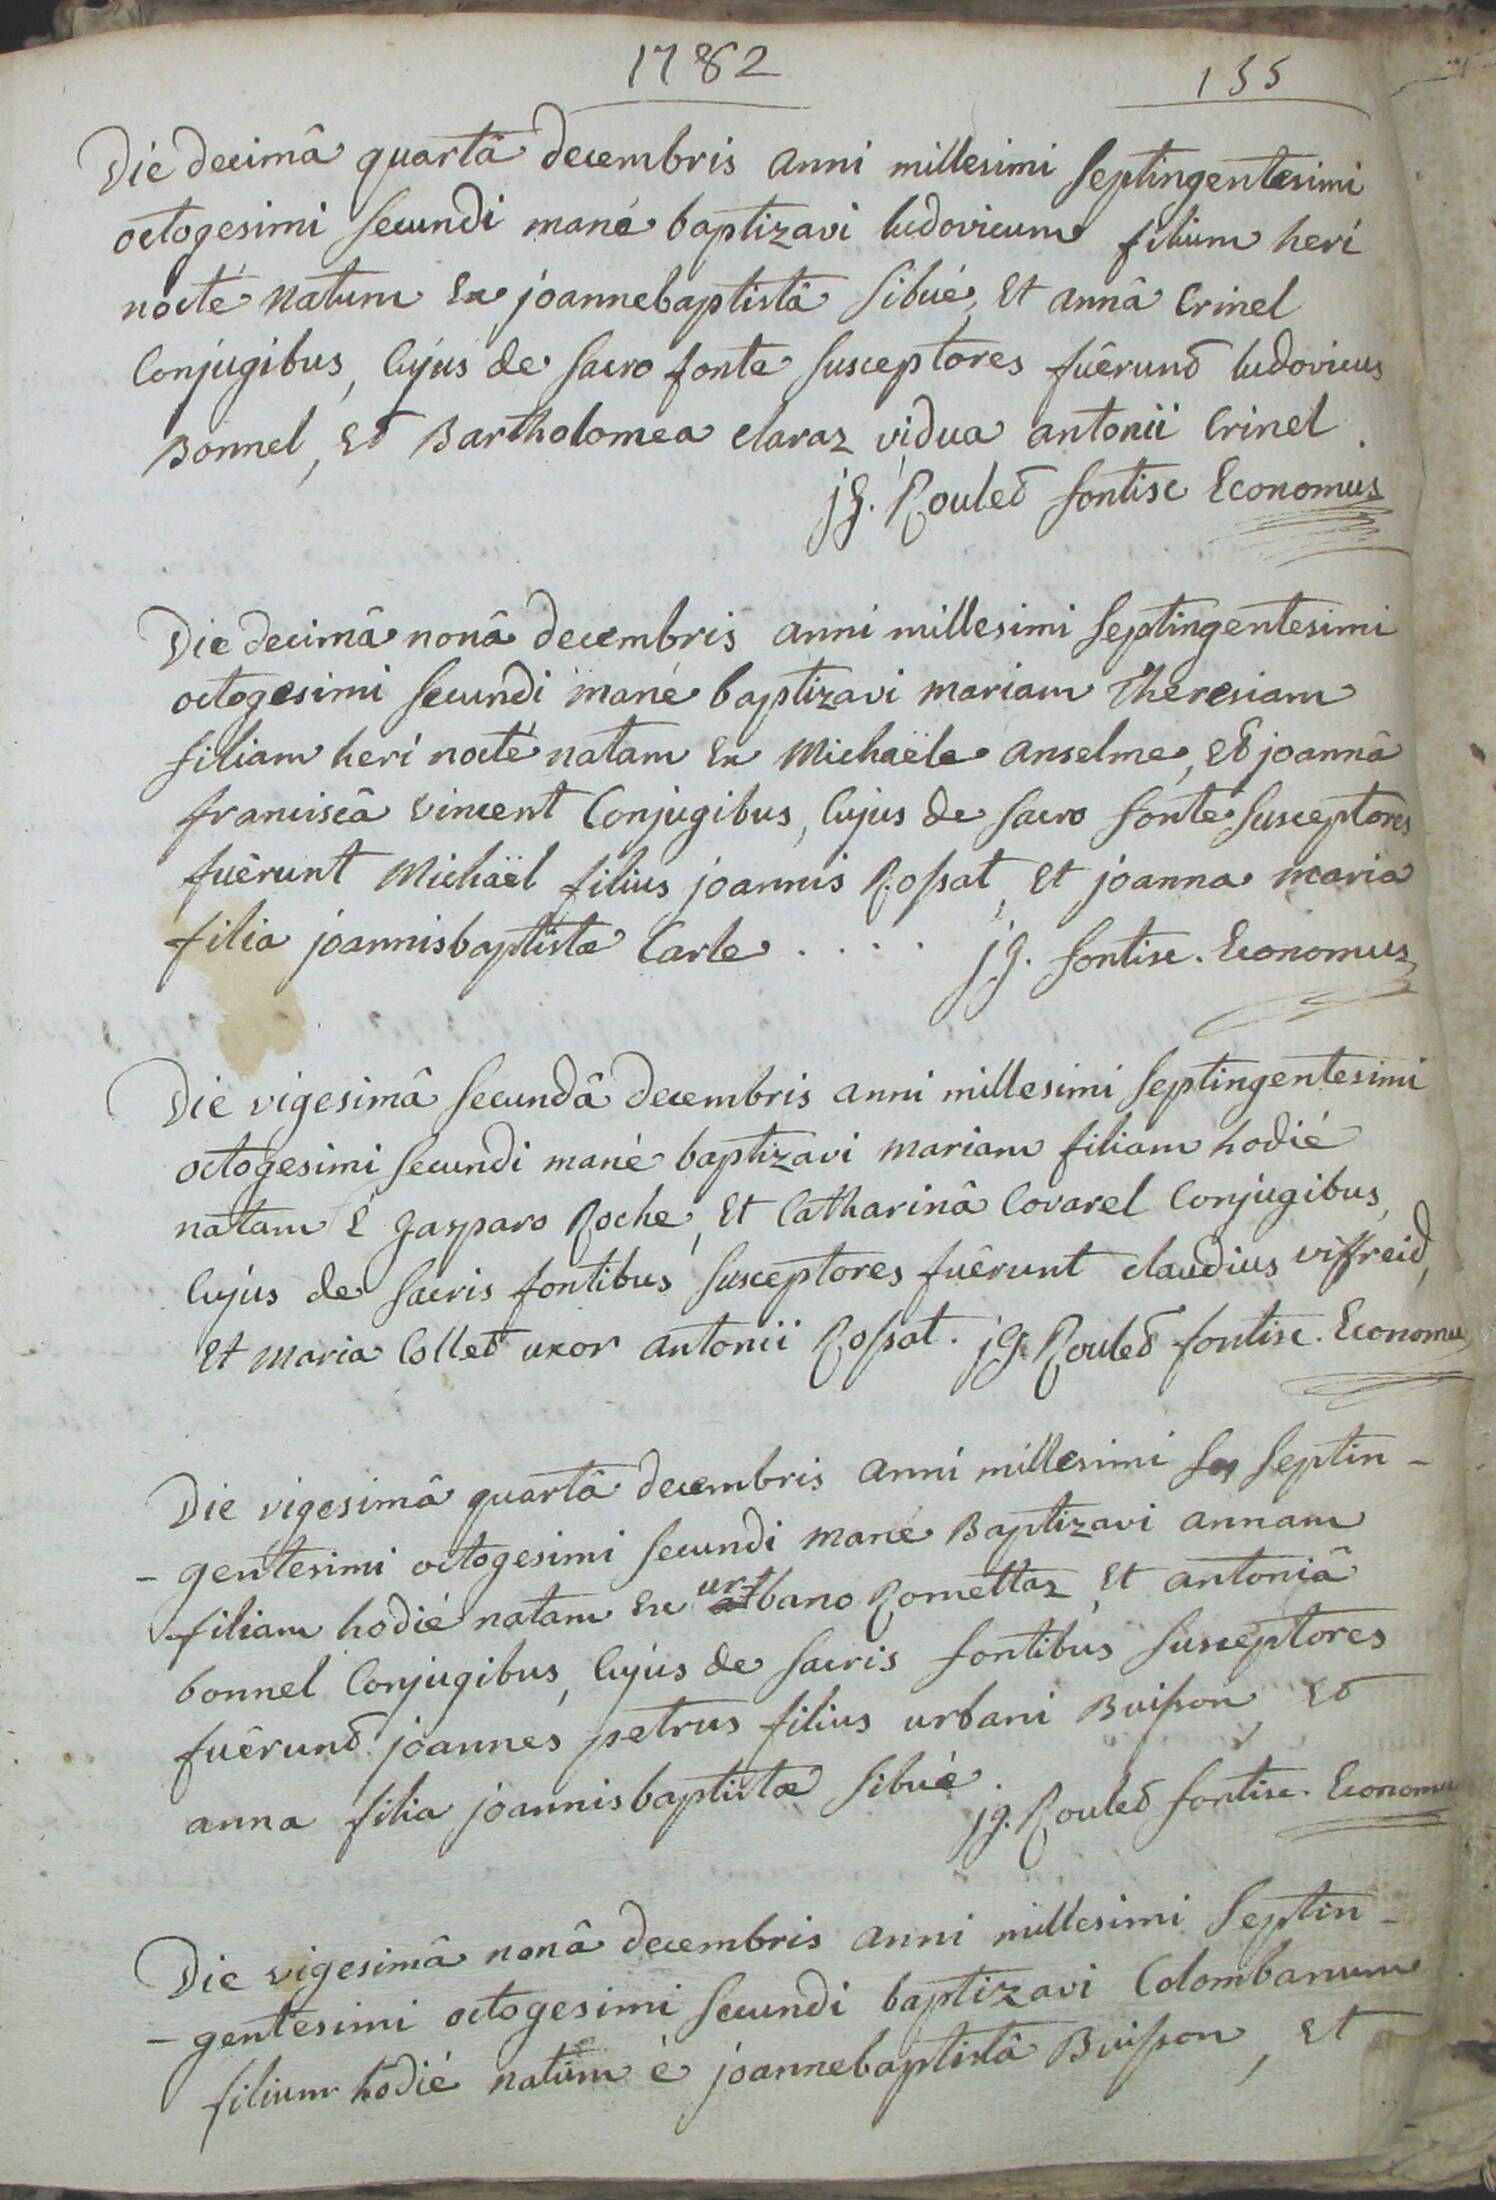 1782
155
Die decimâ quartâ decembris anni millesimi septingentesimi
octogesimi secundi mané baptizavi ludovicum filium heri
nocté natum Ex joannebaptistâ Sibué, Et annâ Crinel
Conjugibus, Cujus de sacro fonte susceptores fuêrunt ludovicus
Bonnel, Et Bartholomea claraz vidua antonii Crinel.
jg. Roulet pontisc Economus
Die decimâ nonâ decembris anni millesimi septingentesimi
octogesimi secundi mané baptizavi mariam Theresiam
filiam heri nocté natam Ex Michaële anselme, Et joannâ
franciscâ vincent Conjugibus, Cujus de sacro fonte susceptores
fuêrunt Michaël filius joannis Rossat, Et joanna maria
filia joannisbaptistæ Carle . . . . jg. pontisc. Economus
Die vigesimâ secundâ decembris anni millesimi septingentesimi
octogesimi secundi mané baptizavi mariam filiam hodié
natam É gasparo Roche, Et Catharinâ Covarel Conjugibus,
Cujus de sacris fontibus susceptores fuêrunt claudius viffreid,
Et maria Collet uxor antonii Rossat. jg. Roulet pontisc. Economu
Die vigesimâ quartâ decembris anni millesimi sep septin-
- gentesimi octogesimi secundi mané Baptizavi annam
filiam hodié natam Ex urbano Romettaz, Et antoniâ
bonnel Conjugibus, Cujus de sacris fontibus susceptores
fuêrunt joannes petrus filius urbani Buisson, Et
anna filia joannisbaptistæ Sibué.
jg. Roulet pontisc. Economu
Die vigesimâ nonâ decembris anni millesimi septin-
- gentesimi octogesimi secundi baptizavi Colombanum
filium hodié natum é joannebaptistâ Buisson, Et